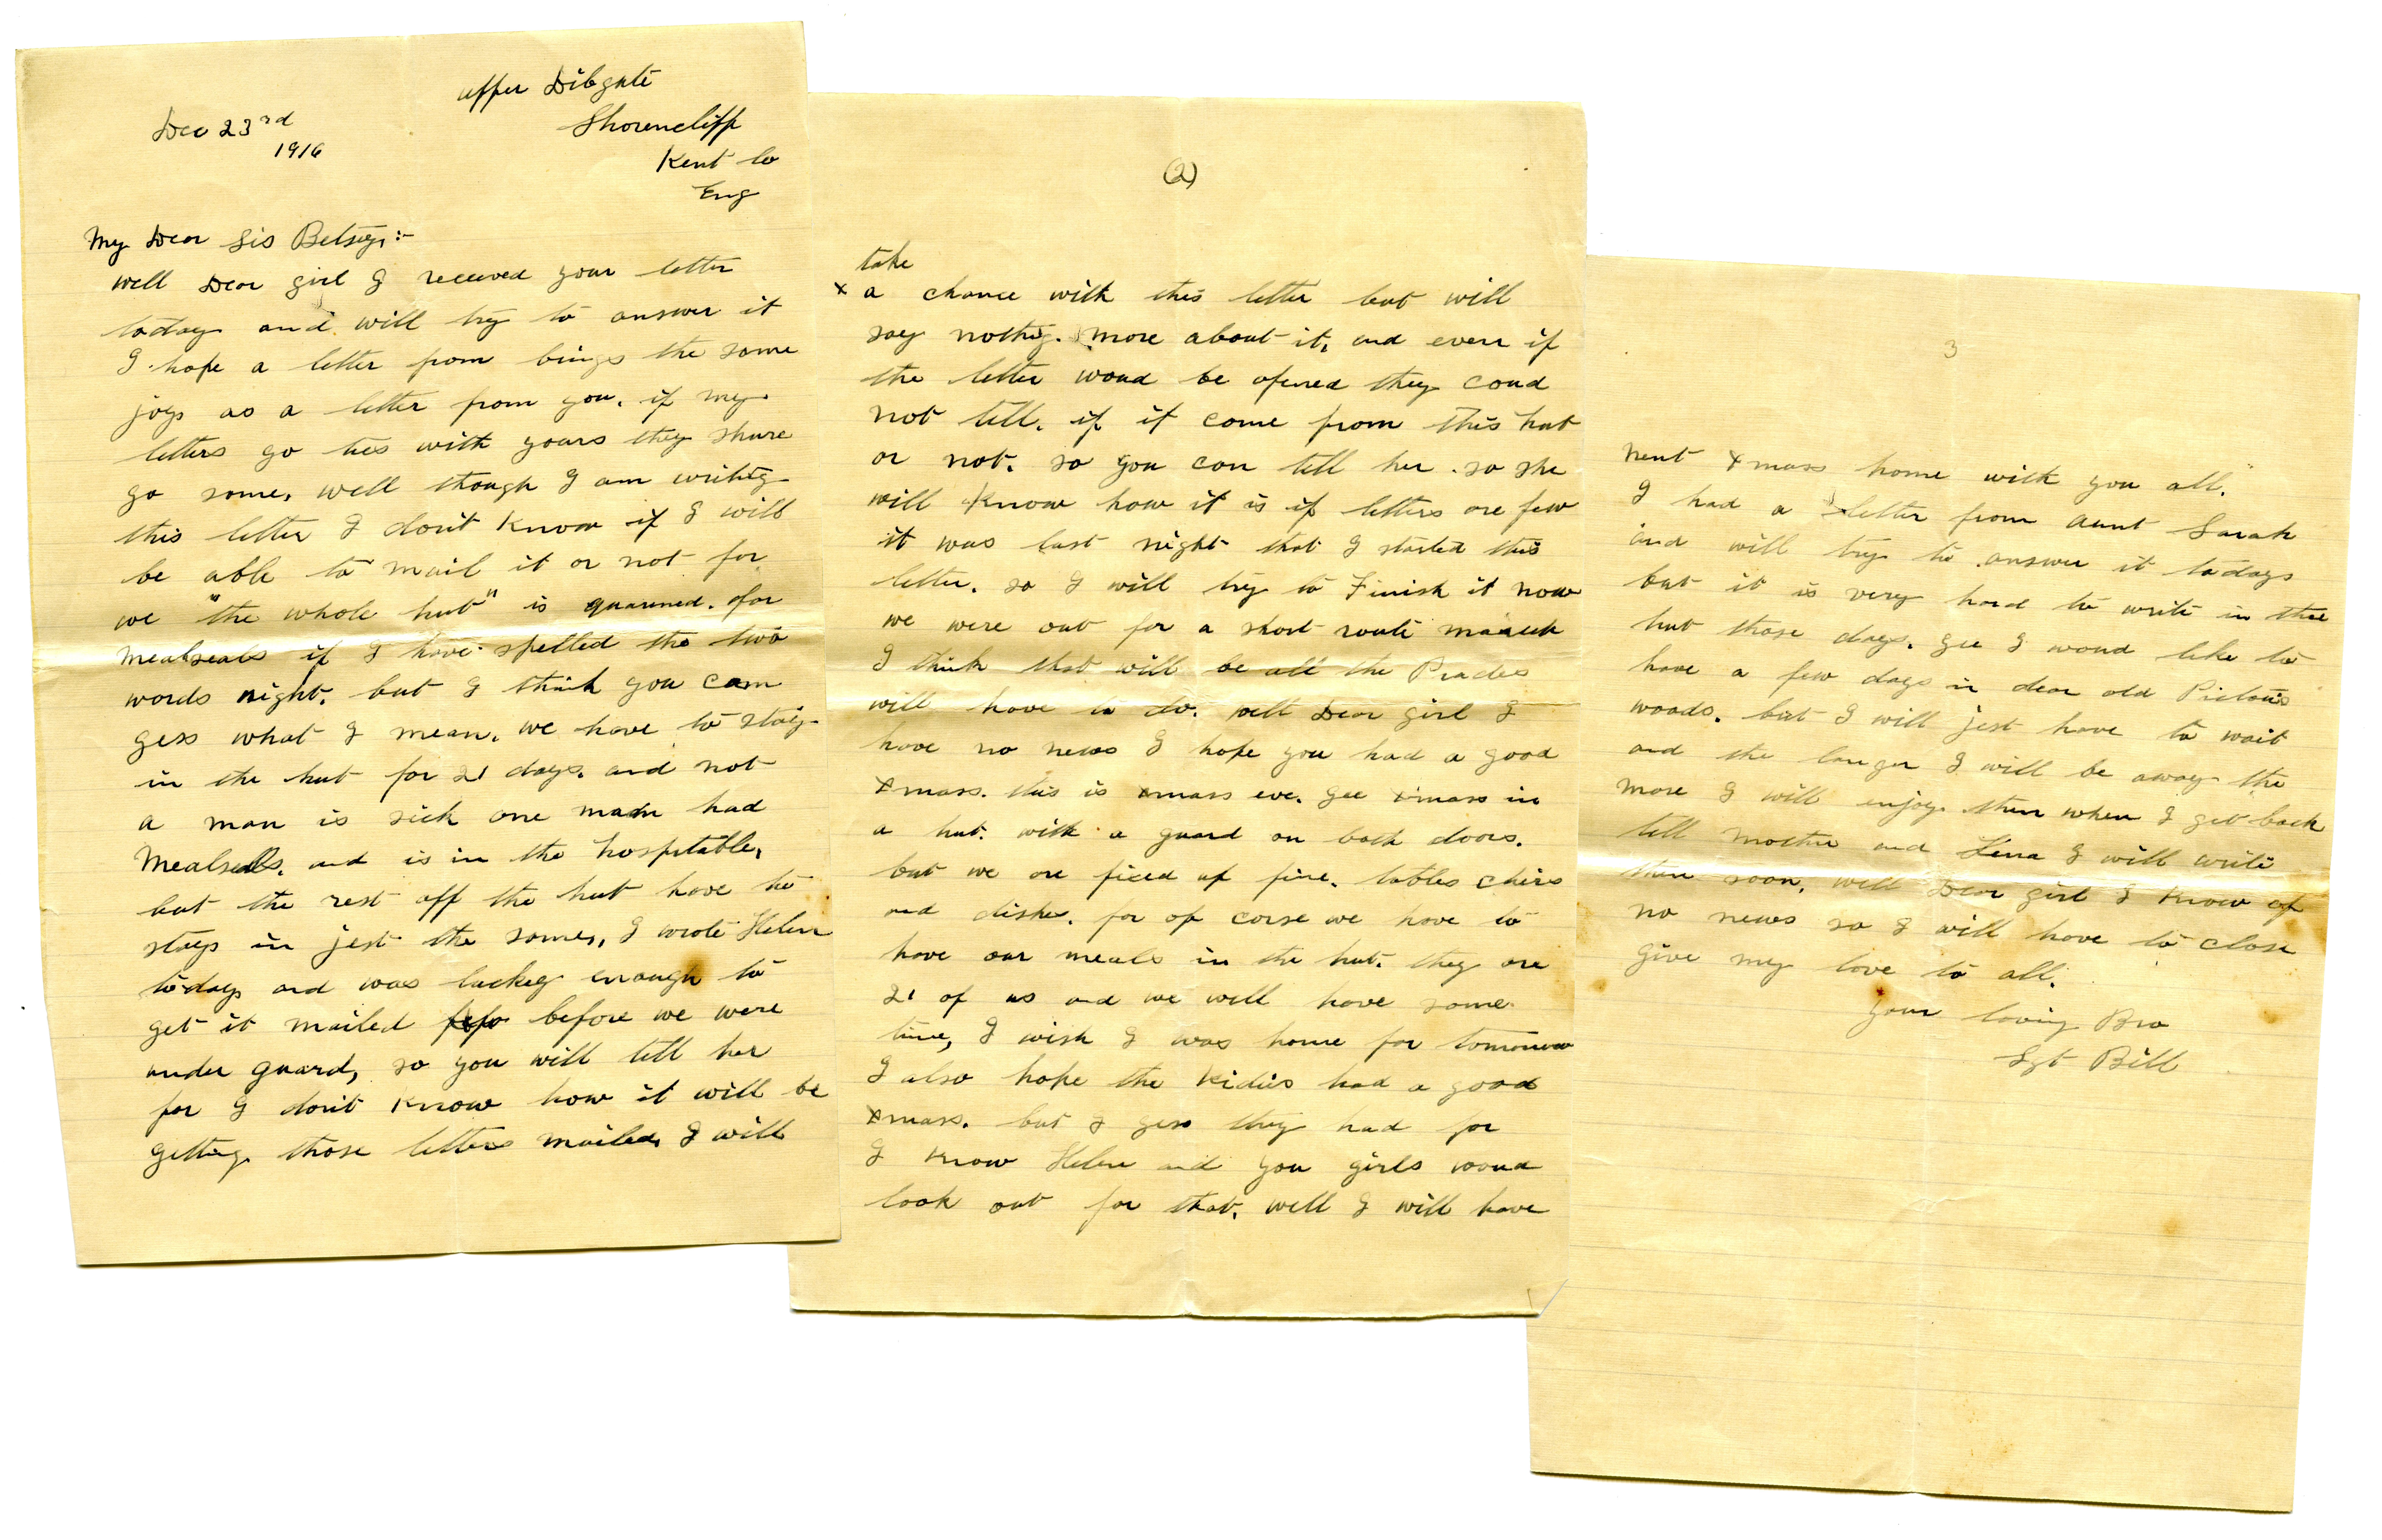 upper Dibgate
Dec 23rd
Shorencliff
1916
Kent Co
Eng
My Dear Sis Betsey:-
well Dear girl I received your letter
today and will try to answer it
I hope a letter from brings the same
joy as a letter from you. if my
letters go ties with yours they shure
go some. well though I am writing
this letter I don't know if I will
be able to mail it or not for
we "the whole hut" is quarined. for
mealseals if I have spelled the two
words night. but I think you cam
gess what I mean. we have to stay
in the hut for 21 days. and not
a man is sick one man had
Mealsells. and is in the hospitable,
but the rest off the hut have to
stay in jest the same, I wrote Helen
today and was luckey enough to
get it mailed before we were
under guard, so you will tell her
for I don't know how it will be
getting those letters mailed, I will
(2)
take
x a chance with this letter but will
say nothig. more about it, and even if
the letter woud be opened they coud
not tell. if it come from this hut
or not. so you can tell her. so she
will know how it is if letters are few
it was last night that I started this
letter. so I will try to Finish it now
we were out for a short route maruch
I think that will be all the Prades
will have to do. well Dear girl I
have no news I hope you had a good
xmass. this is xmass eve. gee xmass in
a hut. with a guard on both doors.
but we are fixed up fine. tables chirs
and dishes. for of corse we have to
have our meals in the hut. they are
21 of us and we will have some
time, I wish I was home for tomorrow
I also hope the Kidies had a good
xmass. but I gess they had for
I know Helen and you girls woud
look out for that. well I will have
3
next xmass home with you all.
I had a letter from Aunt Sarah
and will try to answer it todays
but it is very hard to write in thie
hut those days. gee I woud like to
have a few days in dear old Pictou's
woods. but I will jest have to wait
and the longer I will be away the
more I will enjoy them when I get back
tell mother and Lena I will write
them soon. well Dear girl I know of
no news so I will have to close
give my love to all.
your loving Bro
Sgt Bill